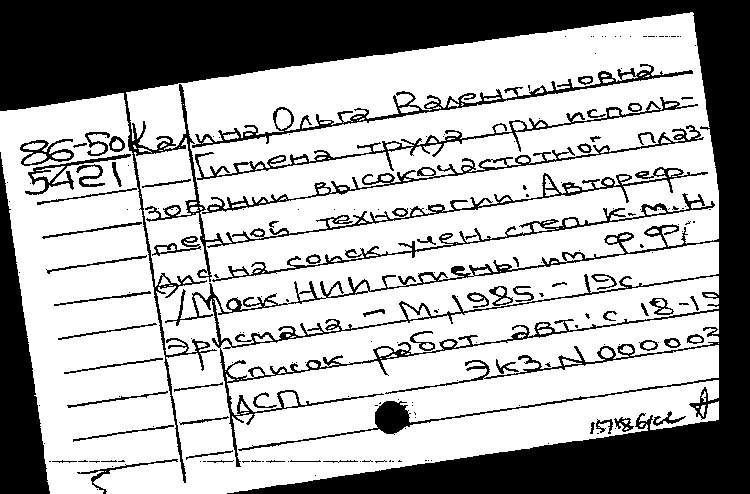 86-50
5421
Калина, Ольга Валентиновна.
Гигиена труда при исполь-
зовании высокочастотной плаз-
менной технологии: Автореф.
дис. на соиск. учен. степ. к.м.н.
/Моск. НИИ гигиены им. Ф.Ф.
Эрисмана. - М., 1985. - 19с.
Список работ авт.: с. 18-19
Экз. N 000003
ДСП.